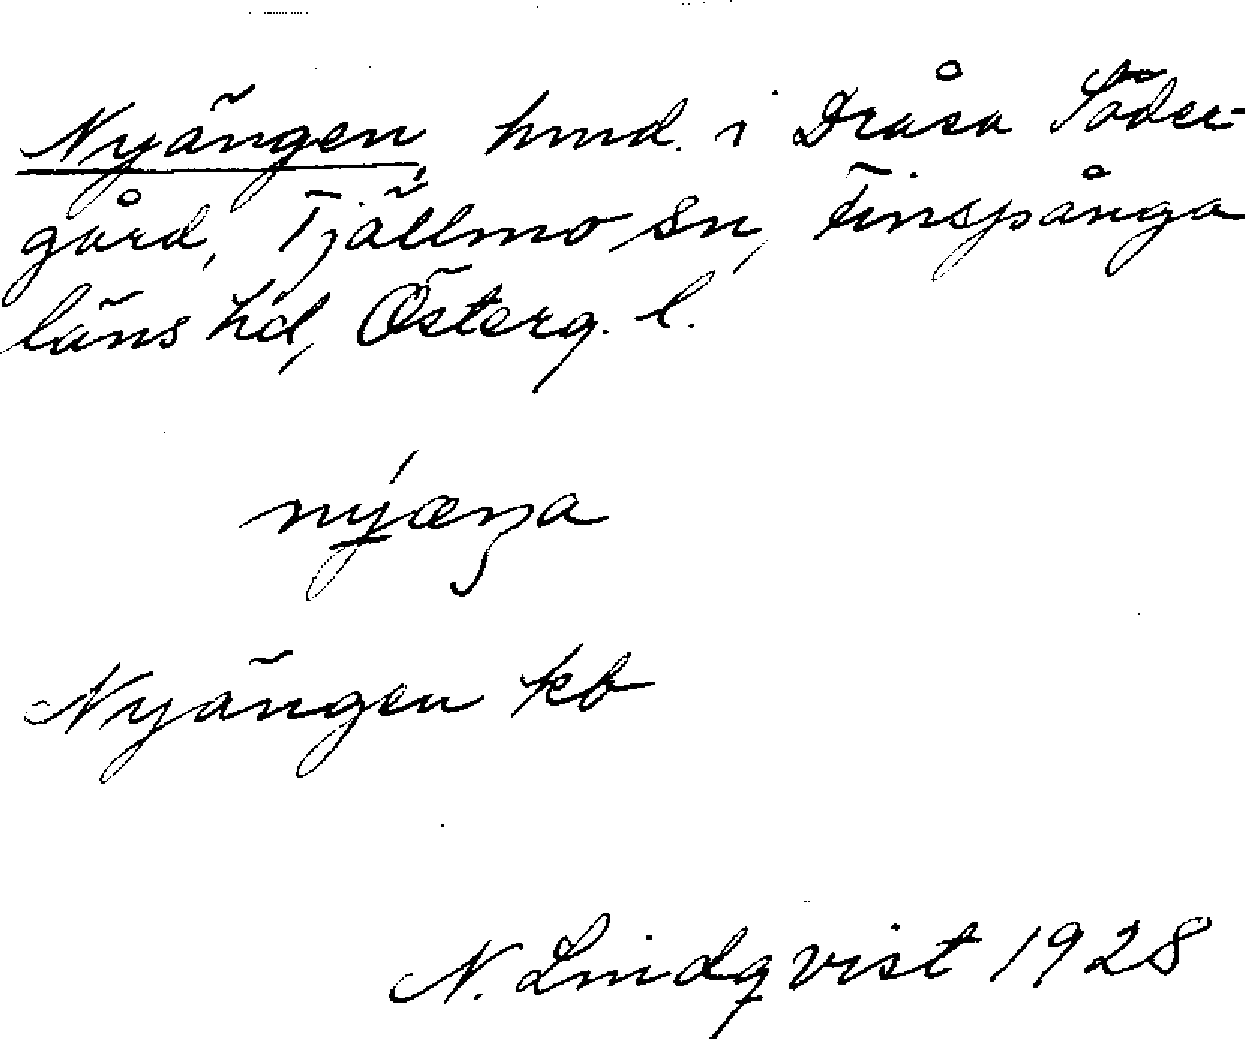 Nyängen, hmd. i Dråsa Söder-
gård, Tjällmo sn, Finspånga
läns hd, Österg. l.
nýæŋa
Nyängen kb
N. Lindqvist 1928